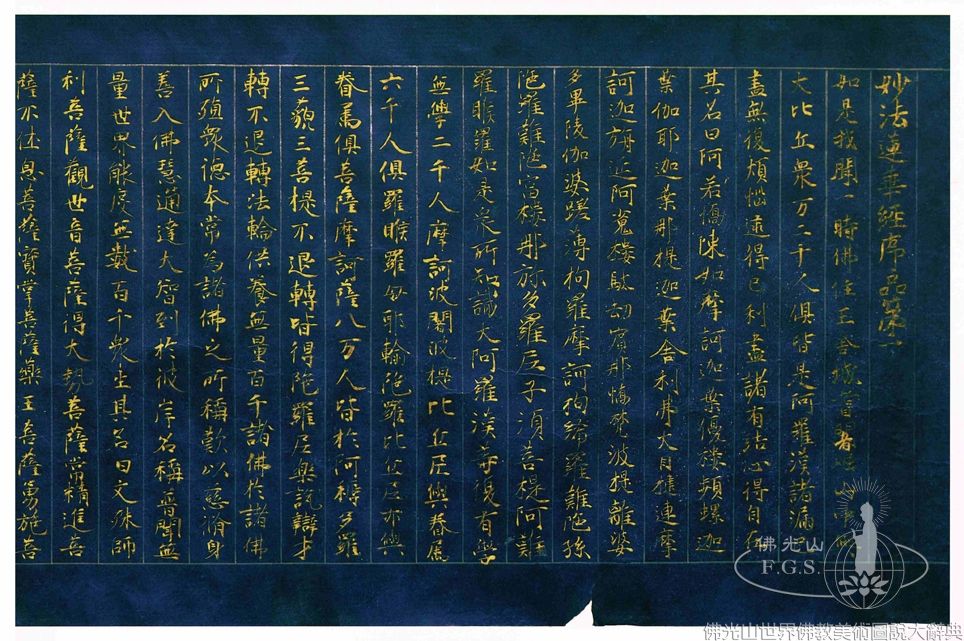 妙法蓮華經序品第一
如是我聞一時佛住王舍城耆闍崛山中與
大比丘衆万二千人俱皆是阿羅漢諸漏已
盡無復煩惱逮得己利盡諸有結心得自在
其名曰阿若憍陳如摩訶迦葉優樓頻螺迦
葉伽耶迦葉那提迦葉舍利弗大目揵連摩
訶迦旃延阿㝹樓馱劫賓那憍梵波提離婆
多畢陵伽婆蹉薄拘羅摩訶拘絺羅難陁孫
陁羅難陁富樓那弥多羅尼子須菩提阿難
羅睺羅如是衆所知識大阿羅漢等復有學
無學二千人摩訶波闍波提比丘尼與眷屬
六千人俱羅睺羅母耶輸陁羅比丘尼亦與
眷屬俱菩薩摩訶薩八万人皆於阿耨多羅
三藐三菩提不退轉皆得陁羅尼樂說辯才
轉不退轉法輪供養無量百千諸佛於諸佛
所殖衆德本常為諸佛之所稱歎以慈脩身
善入佛慧通達大智到於彼岸名稱普聞無
量世界能度無數百千衆生其名曰文殊師
利菩薩觀世音菩薩得大勢菩薩常精進菩
薩不休息菩薩寶掌菩薩藥王菩薩勇施菩
佛光山
F.G.S.
佛光山世界佛教美術圖說大辭典